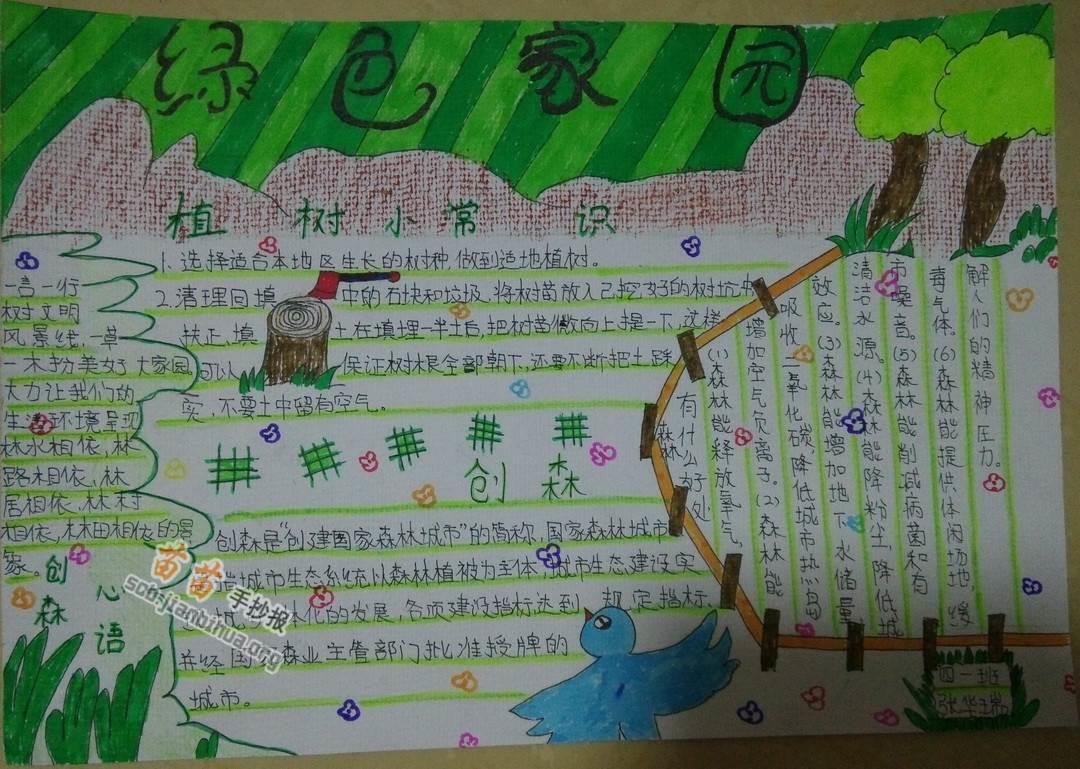 绿色家园
植树小常识
1、选择适合本地区生长的树种,做到适地植树。
2.清理回填中的石块和垃圾,将树苗放入已挖好的树坑中
扶正,填土在填埋一半后,把树苗微向上提一下,这样
可以保证树根全部朝下,还要不断把土踩
实,不要土中留有空气。
一言一行
树文明
风景线,一草
一木扮美好大家园
大力让我们的
生活环境呈现
林水相依,林
路相依,林
居相依,林村
相依,林田相依的景
象。
创森心语
创森
创森是“创建国家森林城市”的简称,国家森林城市
城市生态系统以森林植被为主体,城市生态建设实
体化的发展,各项建设指标达到规定指标
并经国森业主管部门批准授牌的
城市。
森林有什么好处
(1)森林能释放氧气,
增加空气负离子。(2)森林能
吸收二氧化碳,降低城市热岛
效应。(3)森林能增加地下水储量
清洁水源。(4)森林能降粉尘,降低城
市噪音。(5)森林能削减病菌和有
毒气体。(6)森林能提供休闲场地,缓
解人们的精神压力。
四一班
张华瑞
苗苗手抄报
sc6s-jianbihua.org